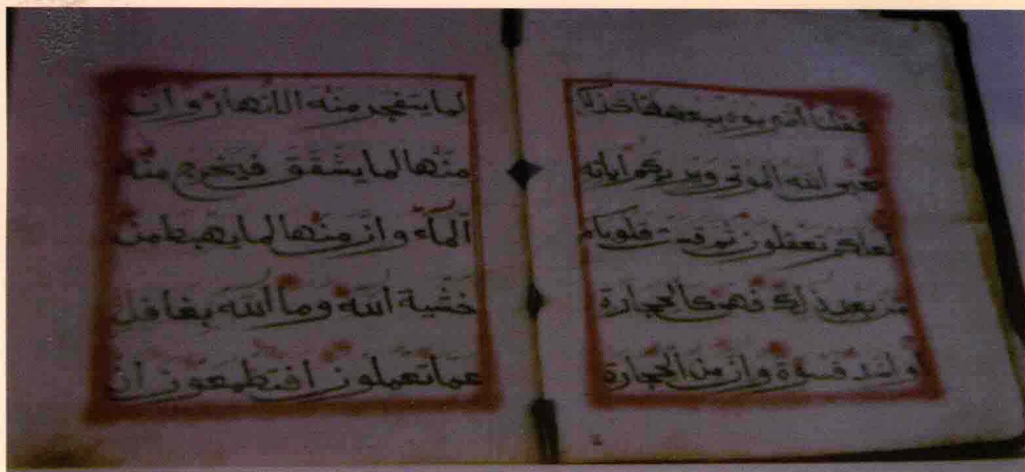 فقلنا اضربوه ببعضها كذلك
يحيى الله الموتى ويريكم اياته
لعلكم تعقلون ثم قست قلوبكم
من بعد ذلك فهى كالحجارة
او اشد قسوة وان من الحجارة
لما يتفجر منه الانهار وان
منها لما يشقق فيخرج منه
الماء وان منها لما يهبط من
خشية الله وما الله بغافل
عما تعملون افتطمعون ان